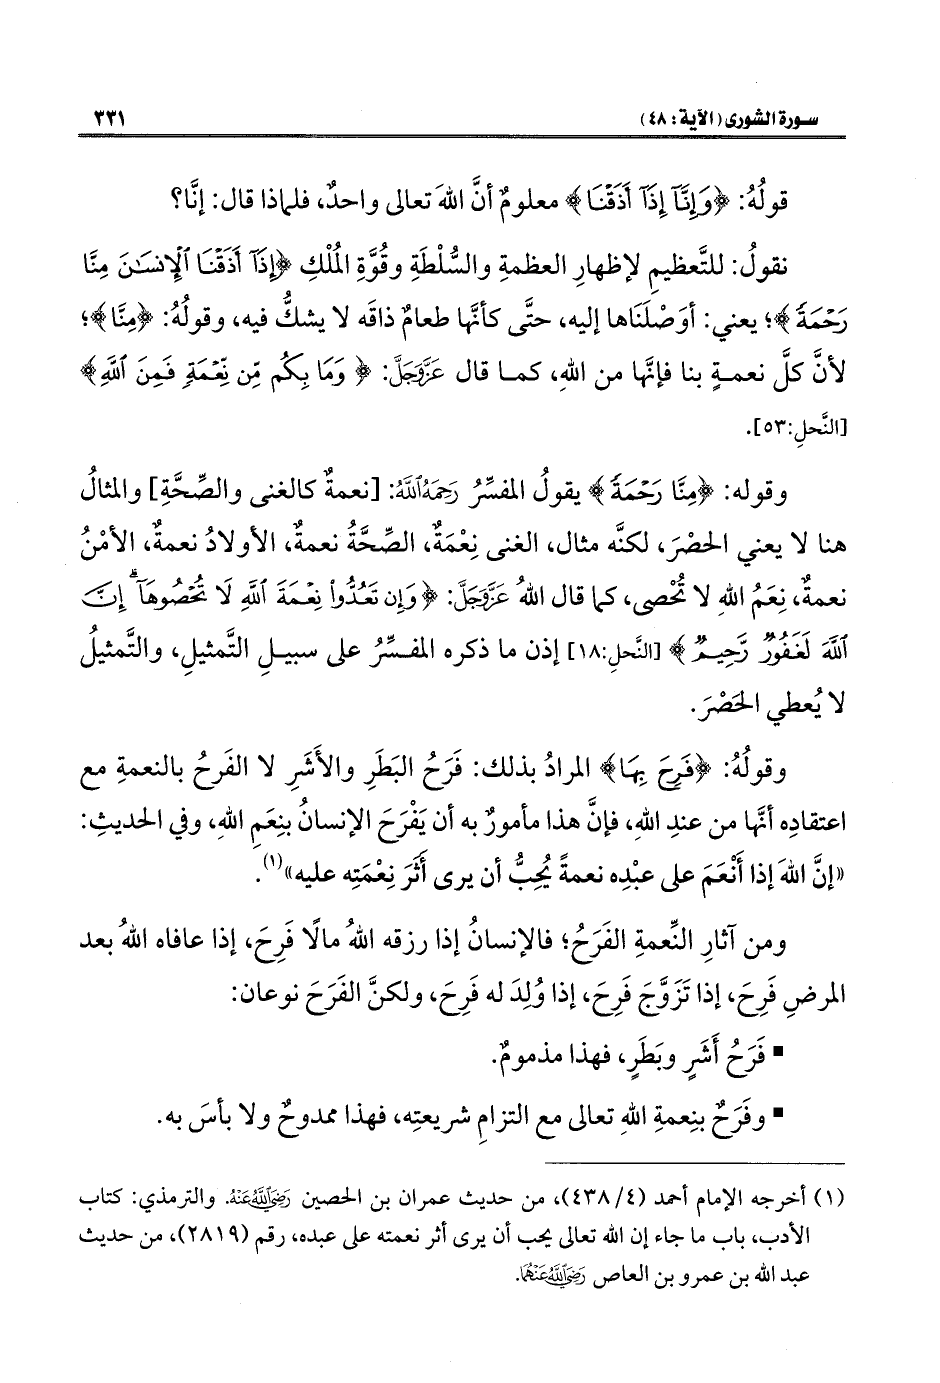 سورة الشورى (الآية: ٤٨) ٣٣١
قولُهُ: ﴿وَإِنَّآ إِذَآ أَذَقْنَا﴾ معلومٌ أنَّ اللهَ تعالى واحدٌ، فلماذا قال: إنَّا؟
نقولُ: للتَّعظيمِ لإظهارِ العظمةِ والسُّلطَةِ وقُوَّةِ المُلْكِ ﴿إِذَآ أَذَقْنَا ٱلْإِنسَٰنَ مِنَّا
رَحْمَةً﴾؛ يعني: أوصَلْنَاها إليه، حتَّى كأنَّها طعامٌ ذاقَه لا يشكُّ فيه، وقولُهُ: ﴿مِنَّا﴾؛
لأنَّ كلَّ نعمـةٍ بنا فإنَّها من اللهِ، كمـا قال عَزَّوَجَلَّ: ﴿ وَمَا بِكُم مِّن نِّعْمَةٍ فَمِنَ ٱللَّهِ﴾
[النَّحلِ:٥٣].
وقوله: ﴿مِنَّا رَحْمَةً﴾ يقولُ المفسِّرُ رَحِمَهُ ٱللَّهُ: [نعمةٌ كالغنى والصِّحَّةِ] والمثالُ
هنا لا يعني الحصْرَ، لكنَّه مثال، الغنى نِعْمَةٌ، الصِّحَّةُ نعمةٌ، الأولادُ نعمةٌ، الأمْنُ
نعمةٌ، نِعَمُ اللهِ لا تُحْصى، كما قال اللهُ عَزَّوَجَلَّ: ﴿وَإِن تَعُدُّوا۟ نِعْمَةَ ٱللَّهِ لَا تُحْصُوهَآ ۗ إِنَّ
ٱللَّهَ لَغَفُورٌ رَّحِيمٌ ﴾ [النَّحلِ:١٨] إذن ما ذكره المفسِّرُ على سبيلِ التَّمثيلِ، والتَّمثيلُ
لا يُعطي الحَصْرَ.
وقولُهُ: ﴿فَرِحَ بِهَا﴾ المرادُ بذلك: فَرَحُ البَطَرِ والأَشَرِ لا الفَرحُ بالنعمةِ مع
اعتقادِه أنَّها من عندِ اللهِ، فإنَّ هذا مأمورٌ به أن يَفْرَحَ الإنسانُ بنِعَمِ اللهِ، وفي الحديثِ:
«إنَّ اللهَ إذا أَنْعَمَ على عبْدِه نعمةً يُحِبُّ أن يرى أَثَرَ نِعْمَتِه عليه»(١).
ومن آثارِ النِّعمةِ الفَرَحُ؛ فالإنسانُ إذا رزقه اللهُ مالًا فَرِحَ، إذا عافاه اللهُ بعد
المرضِ فَرِحَ، إذا تَزَوَّجَ فَرِحَ، إذا وُلِدَ له فَرِحَ، ولكنَّ الفَرَحَ نوعان:
▪ فَرَحُ أَشَرٍ وبَطَرٍ، فهذا مذمومٌ.
▪ وفَرَحٌ بنِعمةِ اللهِ تعالى مع التزامِ شريعتِه، فهذا ممدوحٌ ولا بأسَ به.
(١) أخرجه الإمام أحمد (٤/ ٤٣٨)، من حديث عمران بن الحصين رَضِيَ ٱللَّهُ عَنْهُ. والترمذي: كتاب
الأدب، باب ما جاء إن الله تعالى يحب أن يرى أثر نعمته على عبده، رقم (٢٨١٩)، من حديث
عبد الله بن عمرو بن العاص رَضِيَ ٱللَّهُ عَنْهُمَا.